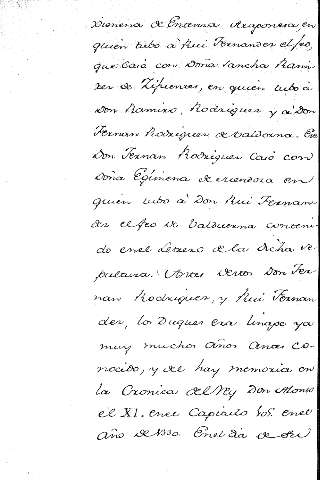 Ximena de Entenna Aragonesa, en
quien tubo à Rui Fernandez el feo,
que Casó con Doña Sancha Rami
rez de Zifuentes, en quien tubo à
Don Ramiro, Rodriguez y à Don
Fernan Rodriguez de Valderna. Este
Don Fernan Rodriguez Casó con
Doña Eximena de Mendoza en
quien tubo à Don Rui Fernan
dez el feo de Valduerna conteni
do en el letrero de la dicha se
pultura. Antes destos Don Fer
nan Rodriguez, y Rui Fernan
dez, los Duques era linage ya
muy muchos años antes co
nocido, y del hay memoria en
la Cronica del Rey Don Alonso
el XI. en el Capitulo en el
año de 1330. En el dia de su